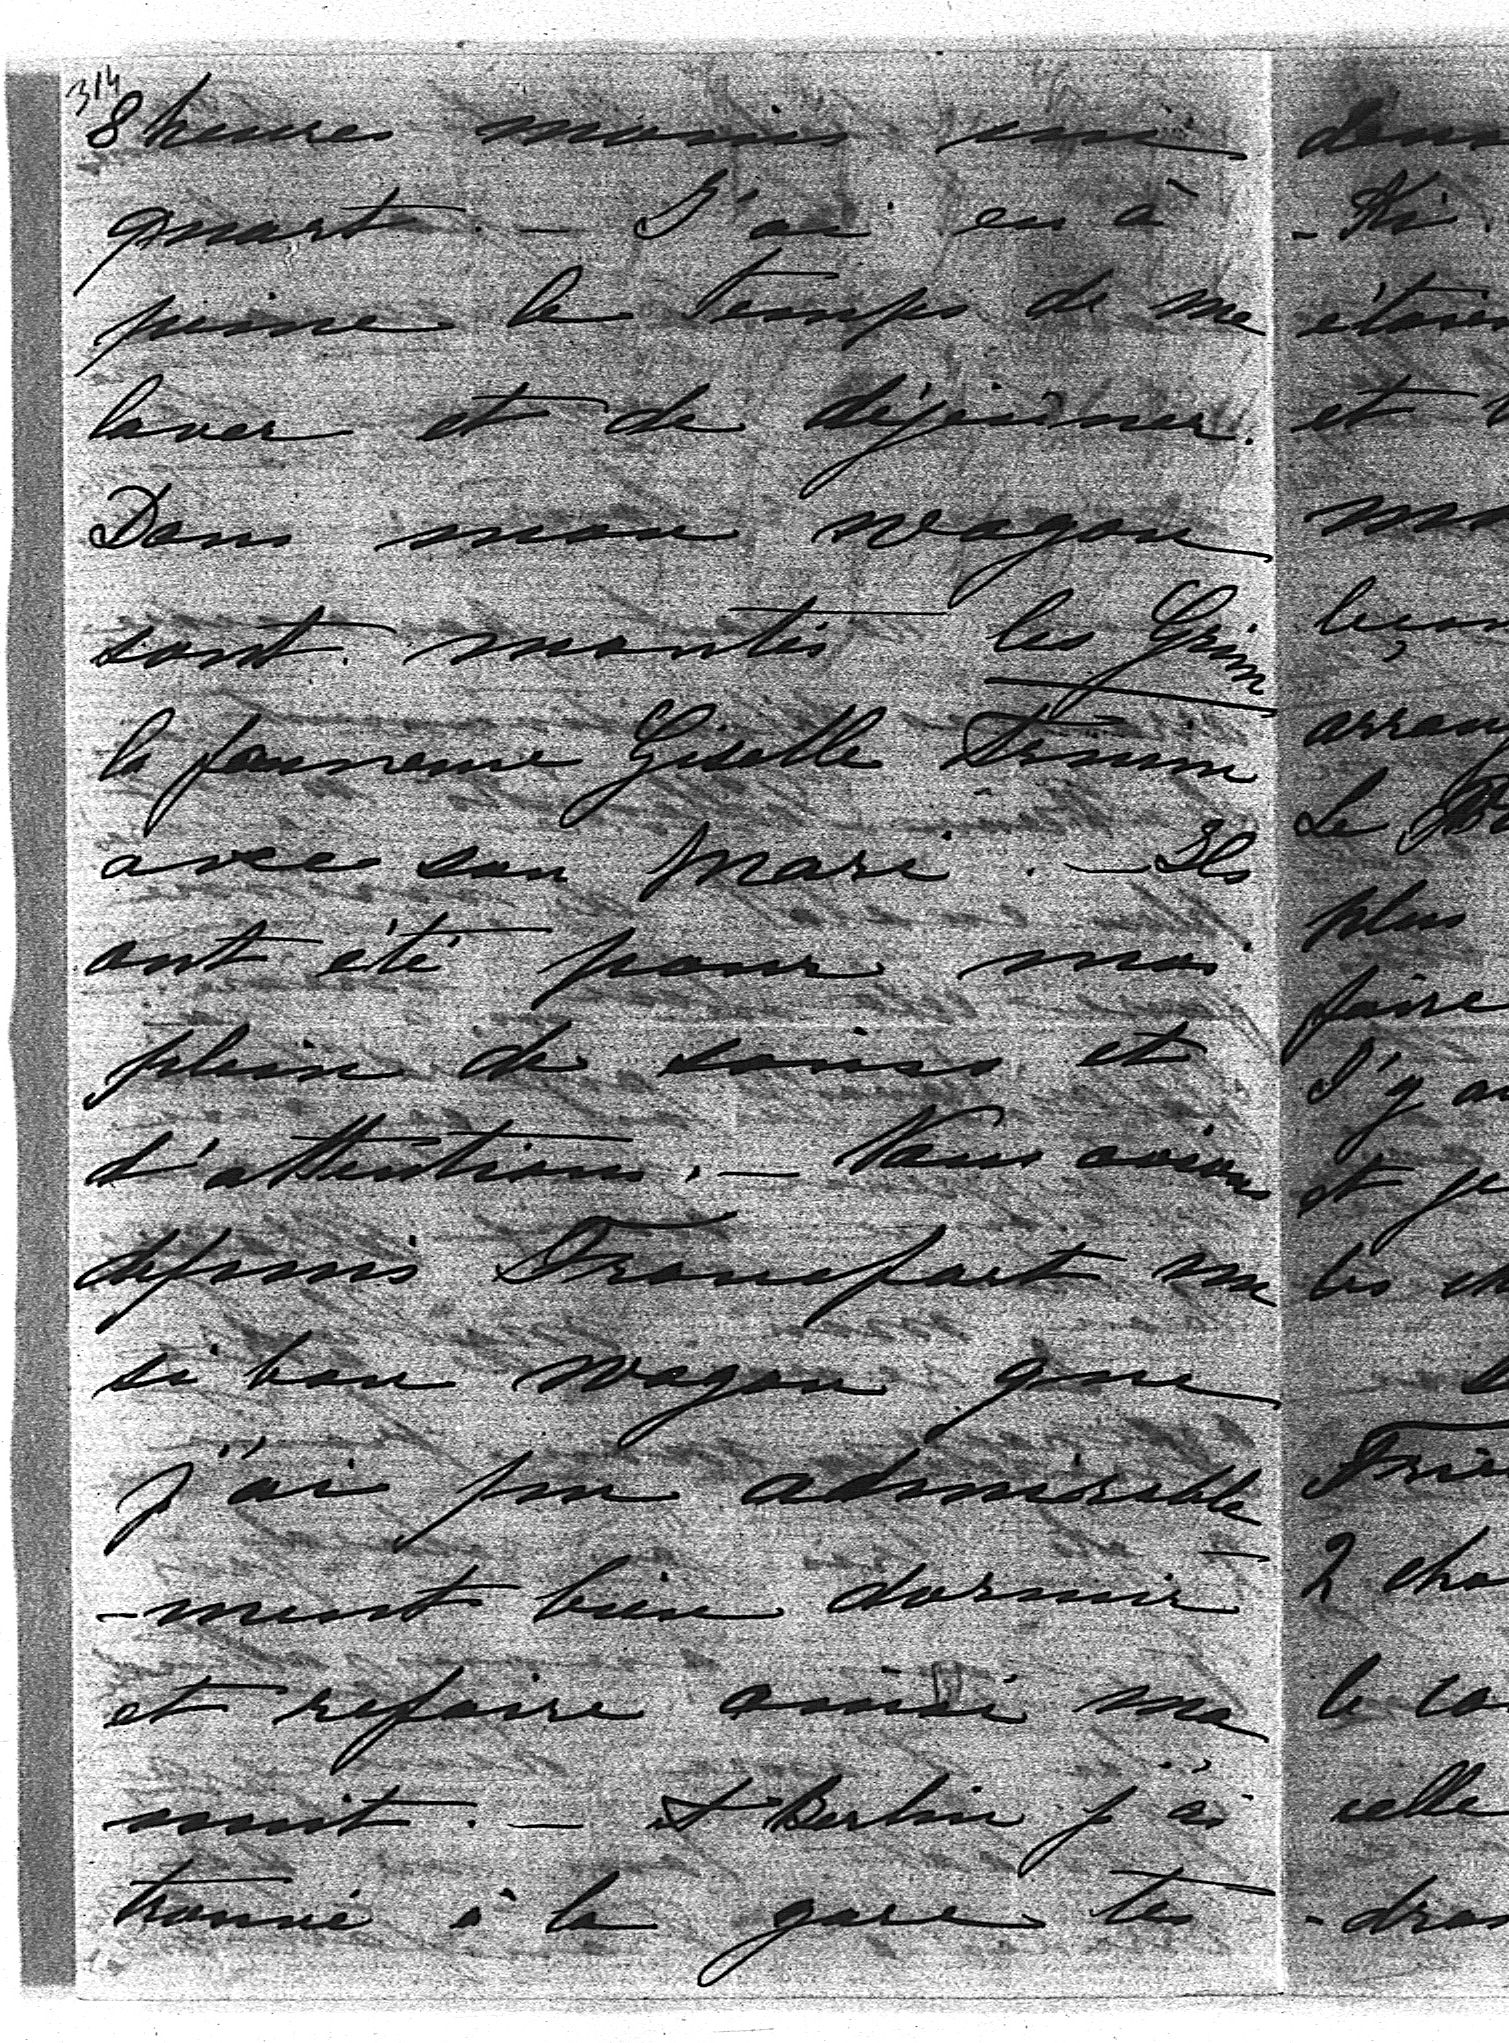 314
8 heures moins un
quart. — J'ai eu à
peine le temps de me
laver et de déjeuner.
Dans mon wagon
sont montés les Grim
la fameuse Giselle
avec son mari. — Ils
ont été pour moi
plein de soins et
d'attentions. — Nous avions
depuis Francfort un
si bon wagon que
j'ai pu admirable
-ment bien dormir
et refaire ainsi ma
nuit. — A Berlin j'ai
trouvé à la gare tes
et
plus
faire
J'y
et je
les
2
celle